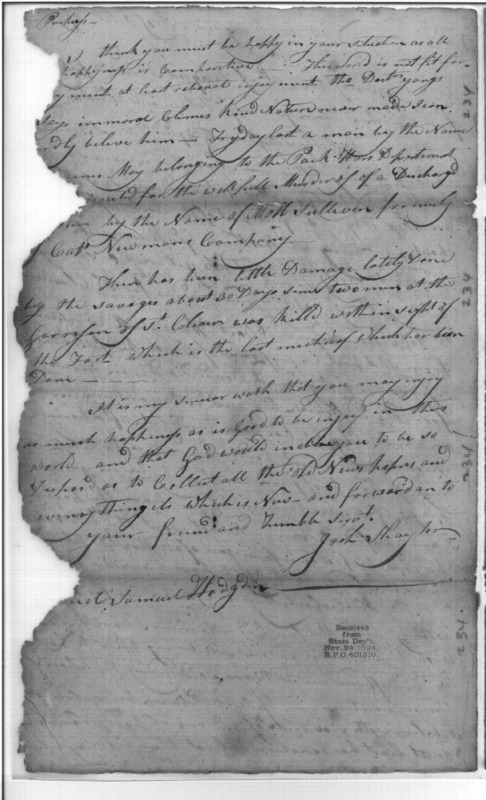 Perhaps
I think you must be happy in your situation as all
happyness is Comparitive This world is not fit for
at least rational injoyment the Doctr yongs
says immoral Climes kind Nature never made
believe him — Fryday last a man by the Name
May belonging to the Pack Hors Department
for the willfull Murder of a Discharg'd
by the Name of Sullivan formerly
Capt Newmans Company
There has been little Damage lately Done
by the savages about 30 Days since two men at the
Garrison of St. Clair was killd within sight of
the Fort which is the last mischief which has been
Done —
It is my sincear wish that you may injoy
as much happiness as is Good to be injoyd in this
world and that God would incline you to be so
as to Collect all the old News papers and
every thing els which is New and forward on to
your friend and Humble Servt.
Josh Shaylor
Samuel Hodgdon
234
234
234
234.
Received
from
State Dep't.
Nov. 24, 1894.
R.P.O. 401810.